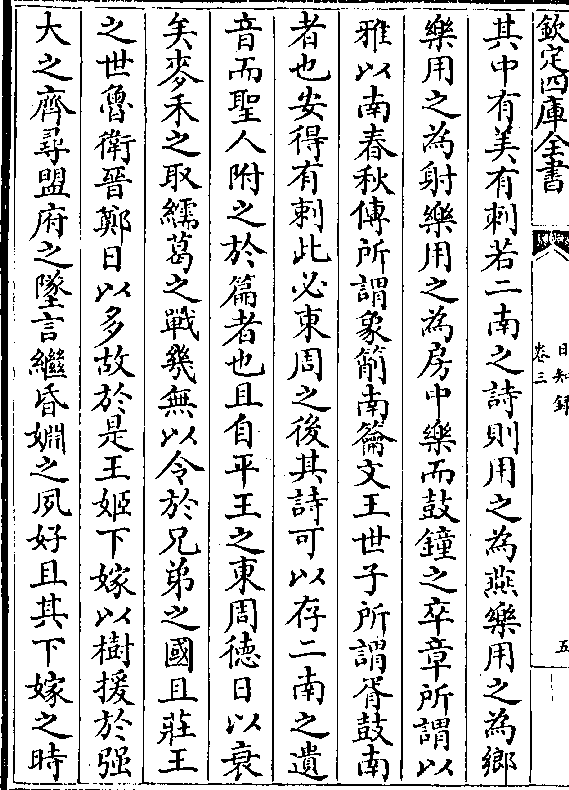 欽定四庫全書
日知録
卷三
五
其中有美有刺若二南之詩則用之為燕樂用之為鄉
樂用之為射樂用之為房中樂而鼓鐘之卒章所謂以
雅以南春秋傳所謂象箾南籥文王世子所謂胥鼓南
者也安得有刺此必東周之後其詩可以存二南之遺
音而聖人附之於篇者也且自平王之東周徳日以衰
矣麥禾之取繻葛之戰幾無以令於兄弟之國且莊王
之世魯衛晉鄭日以多故於是王姬下嫁以樹援於强
大之齊尋盟府之墜言繼昏姻之夙好且其下嫁之時